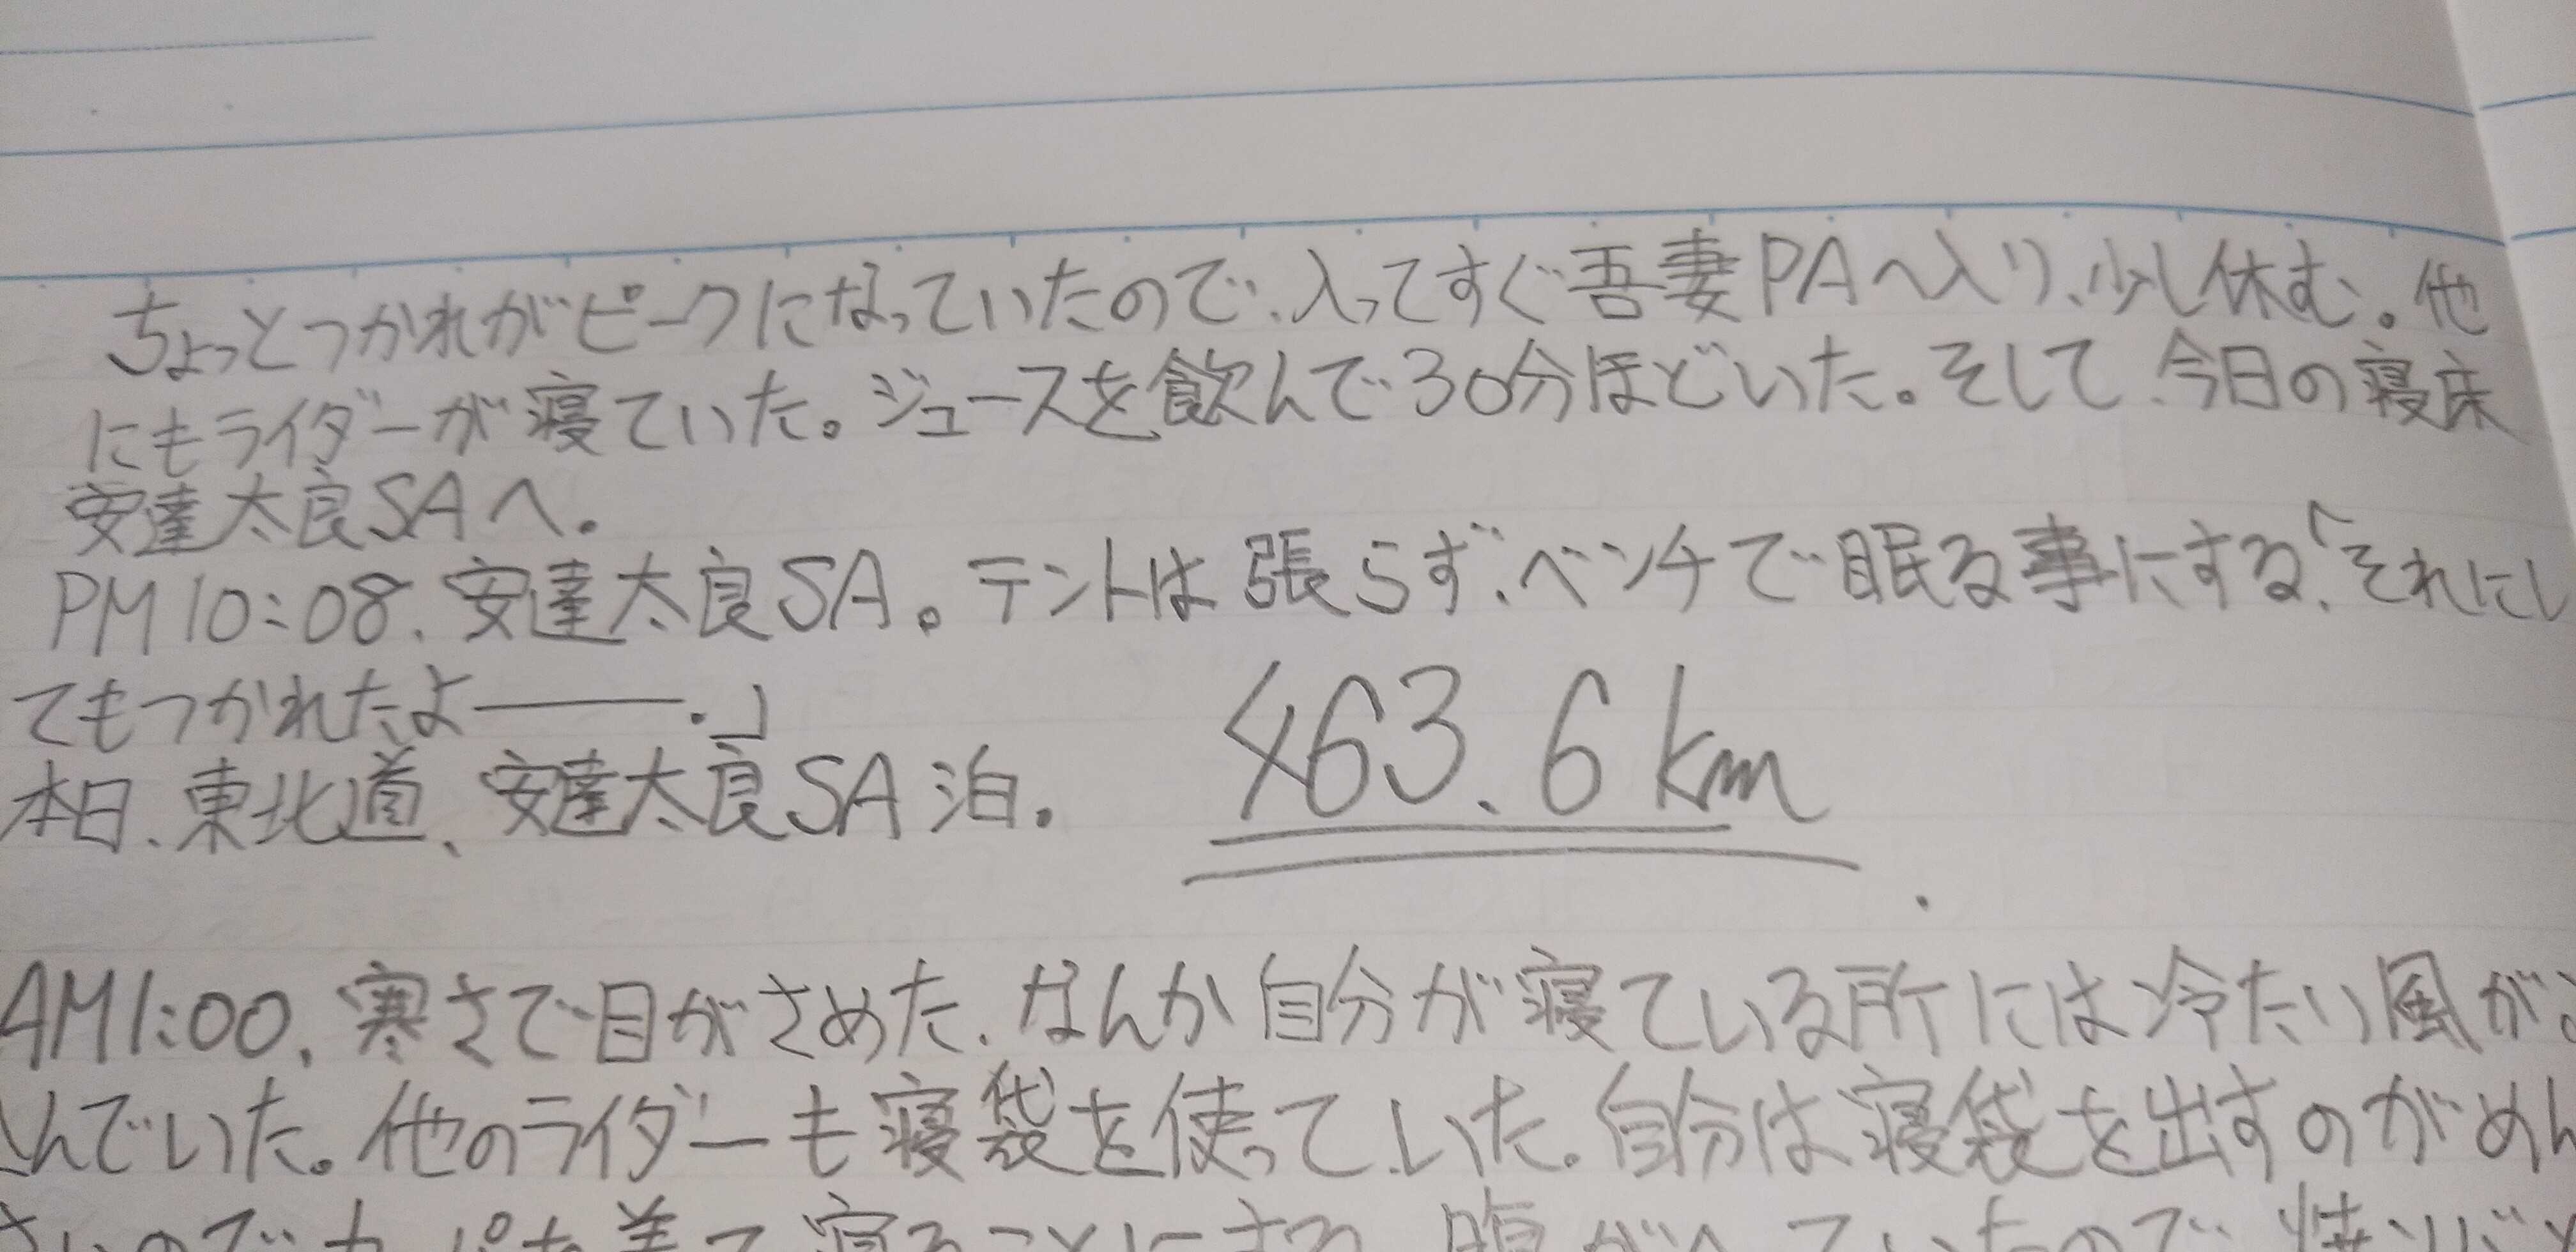 ちょっとつかれがピークになっていたので、入ってすぐ吾妻PAへ入り、少し休む。他
にもライダーが寝ていた。ジュースを飲んで30分ほどいた。そして、今日の寝床
安達太良SAへ。
PM10:08、安達太良SA。テントは張らず、ベンチで眠る事にする、「それにし
てもつかれたよ―――.」
本日、東北道、安達太良SA泊。 463.6km
AM1:00、寒さで目がさめた、なんか自分が寝ている所には冷たい風が
んでいた。他のライダーも寝袋を使っていた。自分は寝袋を出すのがめん
ので、カッパを着て寝ることにする。腹がへっていたので、焼